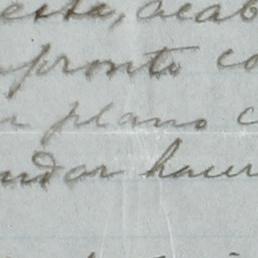 esta, acab
pronto co
plano c
ndar hacer